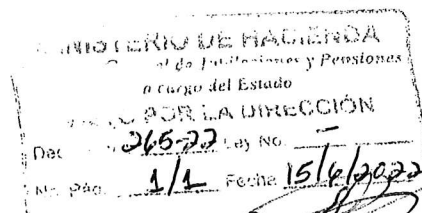 MINISTERIO DE HACIENDA
al de Jubilaciones y Pensiones
a cargo del Estado
POR LA DIRECCIÓN
Dec 265-22 Ley No. —
No. Pág. 1/1 Fecha 15/6/2022